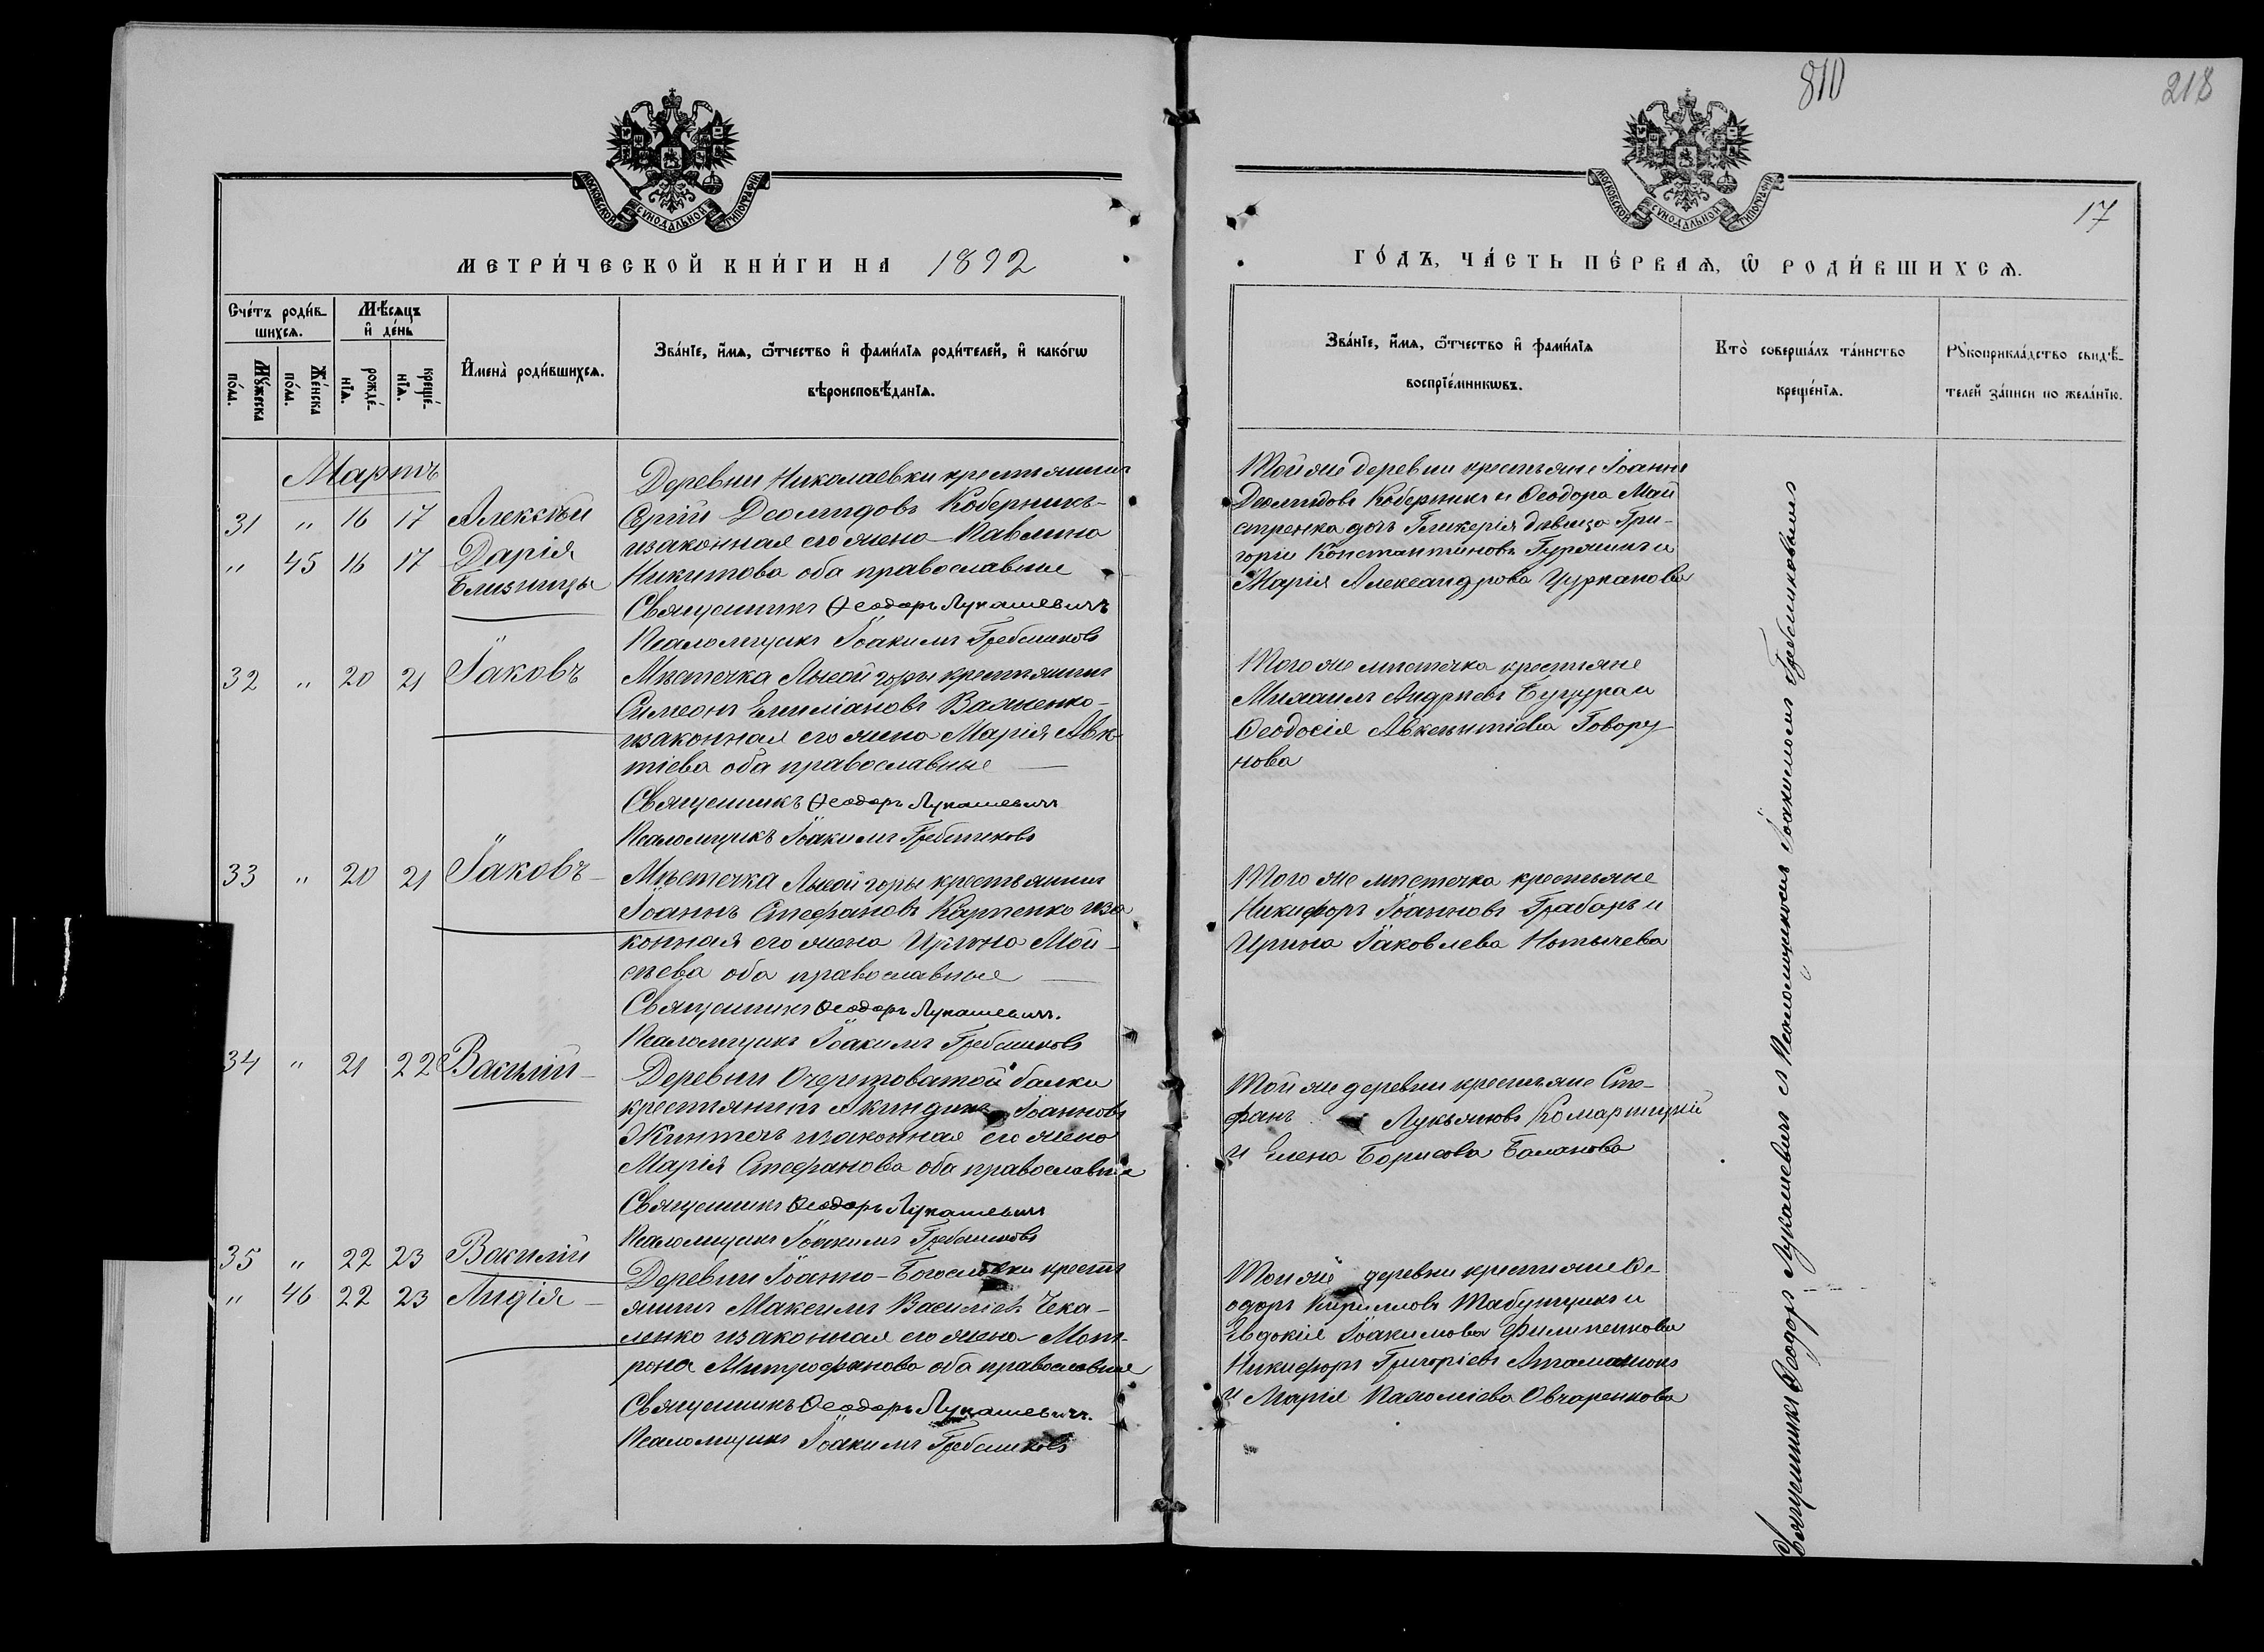 810
218
17
МОСКОВСКОЙ СѴНОДАЛЬНОЙ ТИПОГРАФІИ
МОСКОВСКОЙ СѴНОДАЛЬНОЙ ТИПОГРАФІИ
МЕТРИ́ЧЕСКОЙ КНИ́ГИ НА 1892
ГО́ДЪ, ЧА́СТЬ ПЕ́РВАѦ, Ѡ҆ РОДИ́ВШИХСѦ.
Сче́тъ роди́в-
шихсѧ.
Мѣ́сѧцъ
и҆ де́нь
Мꙋ́жеска
по́ла.
Же́нска
по́ла.
рожде́-
нїѧ.
креще́-
нїѧ.
И҆мена̀ роди́вшихсѧ.
Зва́нїе, и҆́мѧ, ѻ҆́тчество и҆ фами́лїѧ роди́телей, и҆ како́гѡ
вѣроисповѣ́данїѧ.
Зва́нїе, и҆́мѧ, ѻ҆́тчество и҆ фами́лїѧ
воспрїе́мникѡвъ.
Кто̀ соверша́лъ та́инство
креще́нїѧ.
Рꙋкоприкла́дство свидѣ́-
телей за́писи по жела́нїю.
Мартъ
31 " 16 17 Алексѣй
" 45 16 17 Дарія
Близницы
Деревни Николаевки крестьянинъ
Сергій Деомидовъ Коберникъ
изаконная его жена Павлина
Никитова оба православные
Священникъ Ѳеодоръ Лукашевичъ
Псаломщикъ Іоакимъ Гребенниковъ
Той же деревни крестьяне Іоаннъ
Деомидовъ Коберникъ и Ѳеодора Май
стренка дочь Гликерія дѣвица Гри-
горій Константиновъ Гуржинъ и
Марія Александрова Цуркановa
32 " 20 21 Іаковъ
Мѣстечка Лысой горы крестьянинъ
Симеонъ Емиліановъ Важненко
изаконная его жена Марія Авк-
тіева оба православные
Священникъ Ѳеодоръ Лукашевичъ
Псаломщикъ Іоакимъ Гребенниковъ
Того же мѣстечка крестьяне
Михаилъ Андреевъ и
Ѳеодосія Авксентіева Говору-
нова
33 " 20 21 Іаковъ
Мѣстечка Лысой горы крестьянинъ
Іоаннъ Стефановъ Карпенко иза
конная его жена Ирина Мой-
сеева оба православные
Священникъ Ѳеодоръ Лукашевичъ.
Псаломщикъ Іоакимъ Гребенниковъ
Того же мѣстечка крестьяне
Никифоръ Іоанновъ Граборъ и
Ирина Іаковлева
34 " 21 22 Василій
Деревни Очеретоватой балки
крестьянинъ Акиндинъ Іоанновъ
изаконная его жена
Марія Стефанова оба православные
Священникъ Ѳеодоръ Лукашевичъ
Псаломщикъ Іоакимъ Гребенниковъ
Той же деревни крестьяне Сте-
фанъ Лукьяновъ Комарницкій
и Елена Борисова Баланова
35 " 22 23 Василій
" 46 22 23 Лидія
Деревни Іоанно-Богословки крестья
янинъ Максимъ Василіевъ Чека-
ленко изаконная его жена Мат-
рона Митрофанова оба православные
Священникъ Ѳеодоръ Лукашевичъ.
Псаломщикъ Іоакимъ Гребенниковъ
Той же деревни крестьяне Ѳе-
одоръ Кирилловъ Табунщикъ и
Евдокія Іоакимова Филипенкова
Никифоръ Григоріевъ Атаманюкъ
и Марія Пахоміева Овчаренкова
Священникъ Ѳеодоръ Лукашевичъ съ Псаломщикомъ Іоакимомъ Гребенниковымъ